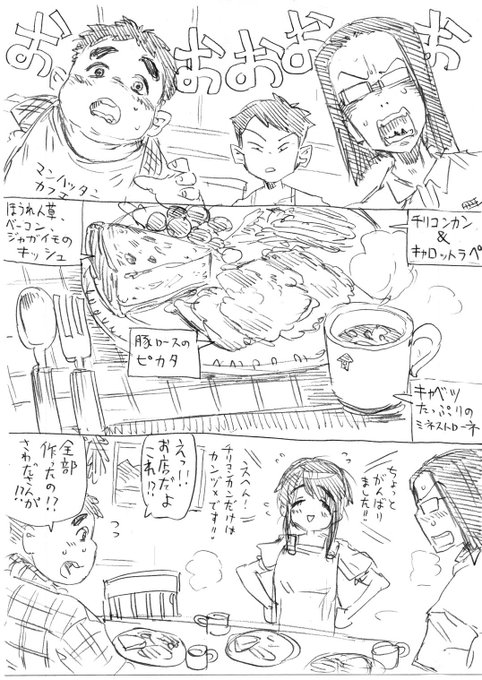 おおおおお
マンハッタン
カフェ
チリコンカン
&
キャロットラペ
ほうれん草、
ベーコン、
ジャガイモの
キッシュ
豚ロースの
ピカタ
キャベツ
たっぷりの
ミネストローネ
ちょっと
がんばり
ました!!
えへん!
チリコンカンだけは
カンヅメです!!
えっ!!
お店だよ
これ!!?
全部
作たの!!?
さわださんが
!!?